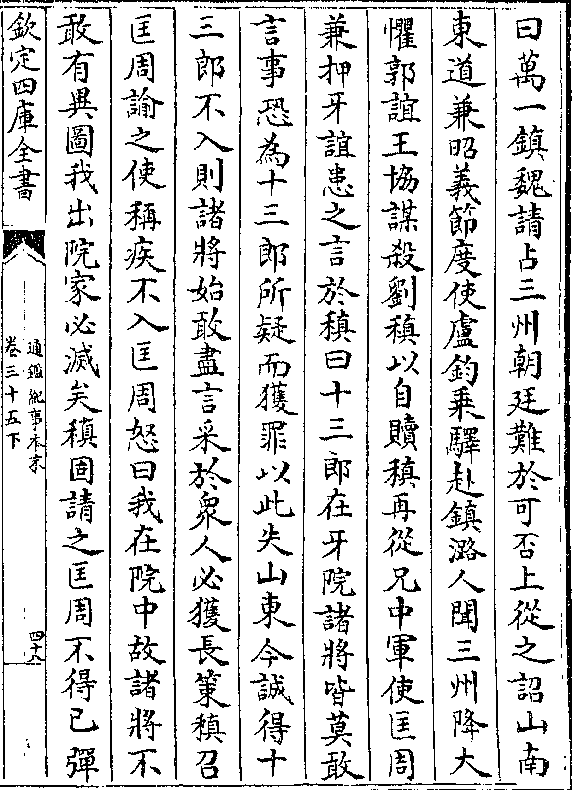 曰萬一鎮魏請占三州朝廷難於可否上從之詔山南
東道兼昭義節度使盧鈞乗驛赴鎮潞人聞三州降大
懼郭誼王協謀殺劉稹以自贖稹再從兄中軍使匡周
兼押牙誼患之言於稹曰十三郎在牙院諸將皆莫敢
言事恐為十三郎所疑而獲罪以此失山東今誠得十
三郎不入則諸將始敢盡言采於衆人必獲長策稹召
匡周諭之使稱疾不入匡周怒曰我在院中故諸將不
敢有異圖我出院家必滅矣稹固請之匡周不得已彈
欽定四庫全書
通鑑紀事本末
卷三十五下
四十八